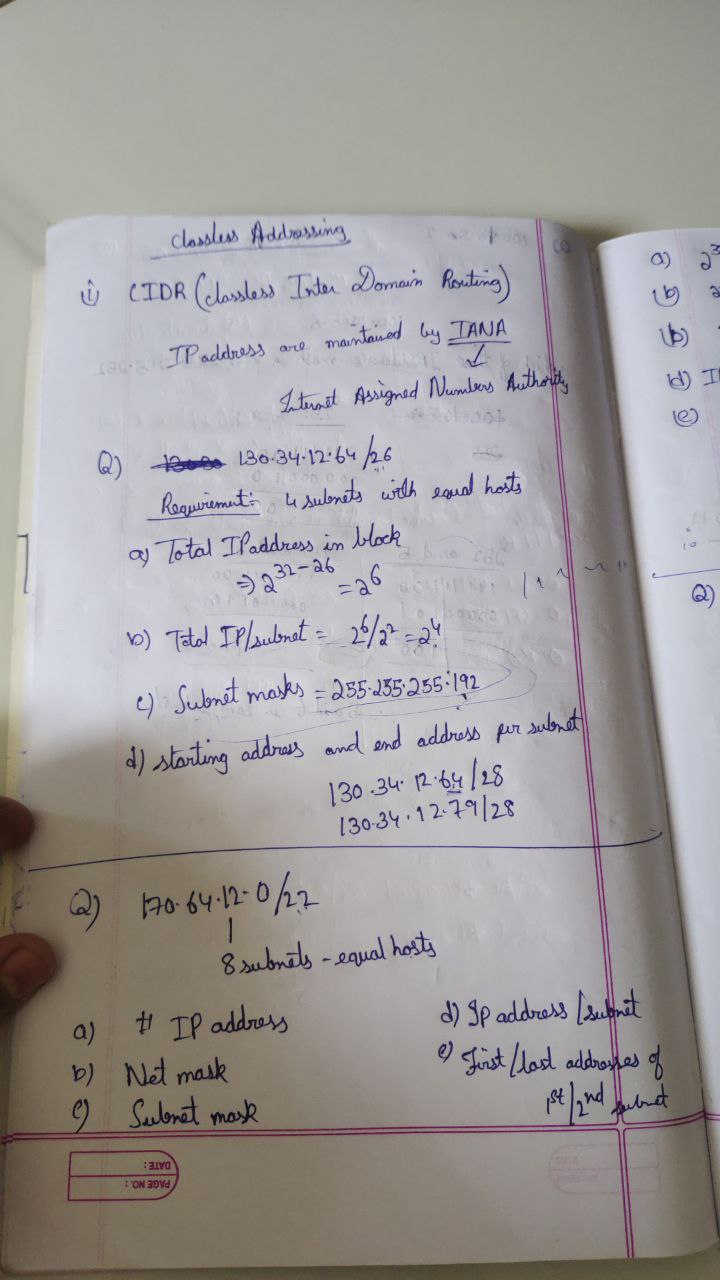 Classless Addressing
i) CIDR (classless Inter Domain Routing)
IP address are maintained by IANA
Internet Assigned Numbers Authority
Q) 130.34.12.64/26
Requirement: 4 subnets with equal hosts
a) Total IP address in block
⇒ 2^32-26 = 2^6
b) Total IP/subnet = 2^6/2^2 = 2^4
c) Subnet masks = 255.255.255.192
d) starting address and end address per subnet
130.34.12.64/28
130.34.12.79/28
Q) 170.64.12.0/22
8 subnets - equal hosts
a) # IP address
b) Net mask
c) Subnet mask
d) Ip address/subnet
e) First/last addresses of
1st/2nd subnet
DATE:
PAGE NO.:
a)
(b)
(d)
(e)
Q)